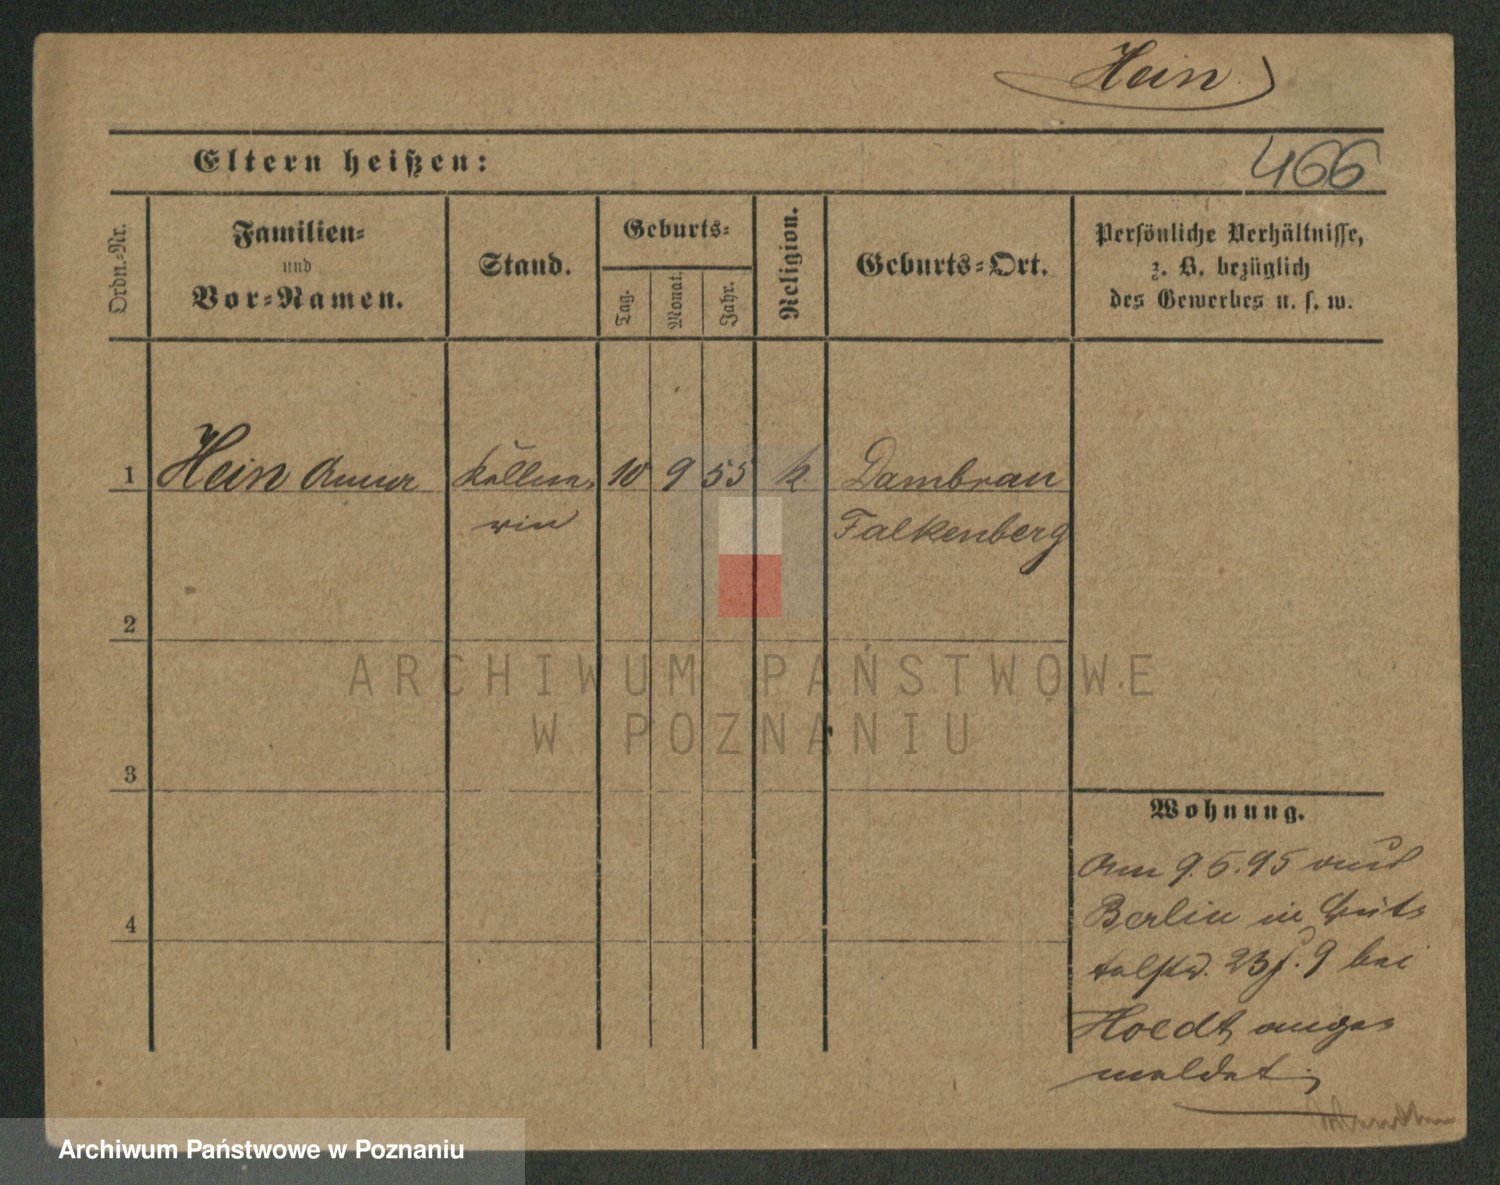 Hein
Eltern heißen:
466
Ordn.-Nr.
Familien-
und
Vor-Namen.
Stand.
Geburts-
Tag.
Monat.
Jahr.
Religion.
Geburts-Ort.
Persönliche Verhältnisse,
z. B. bezüglich
des Gewerbes u. s. w.
1
Hein Anna
Kellne-
rin
10
9
55
k.
Dambrau
Falkenberg
2
3
4
Wohnung.
Am 9.5.95 aus
Berlin in
23 9 bei
Hoedt ange-
meldet
ARCHIWUM PAŃSTWOWE
W POZNANIU
Archiwum Państwowe w Poznaniu